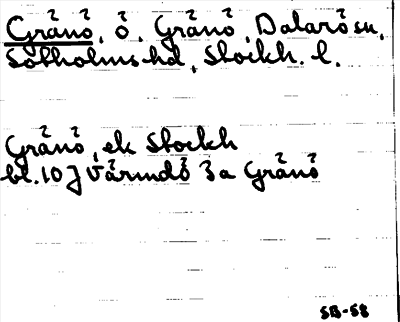 Granö, ö, Granö, Dalarö sn,
Sotholms hd, Stockh. l.
Granö, ek Stockh
bl. 10 J Värmdö 3a Granö
SB-58